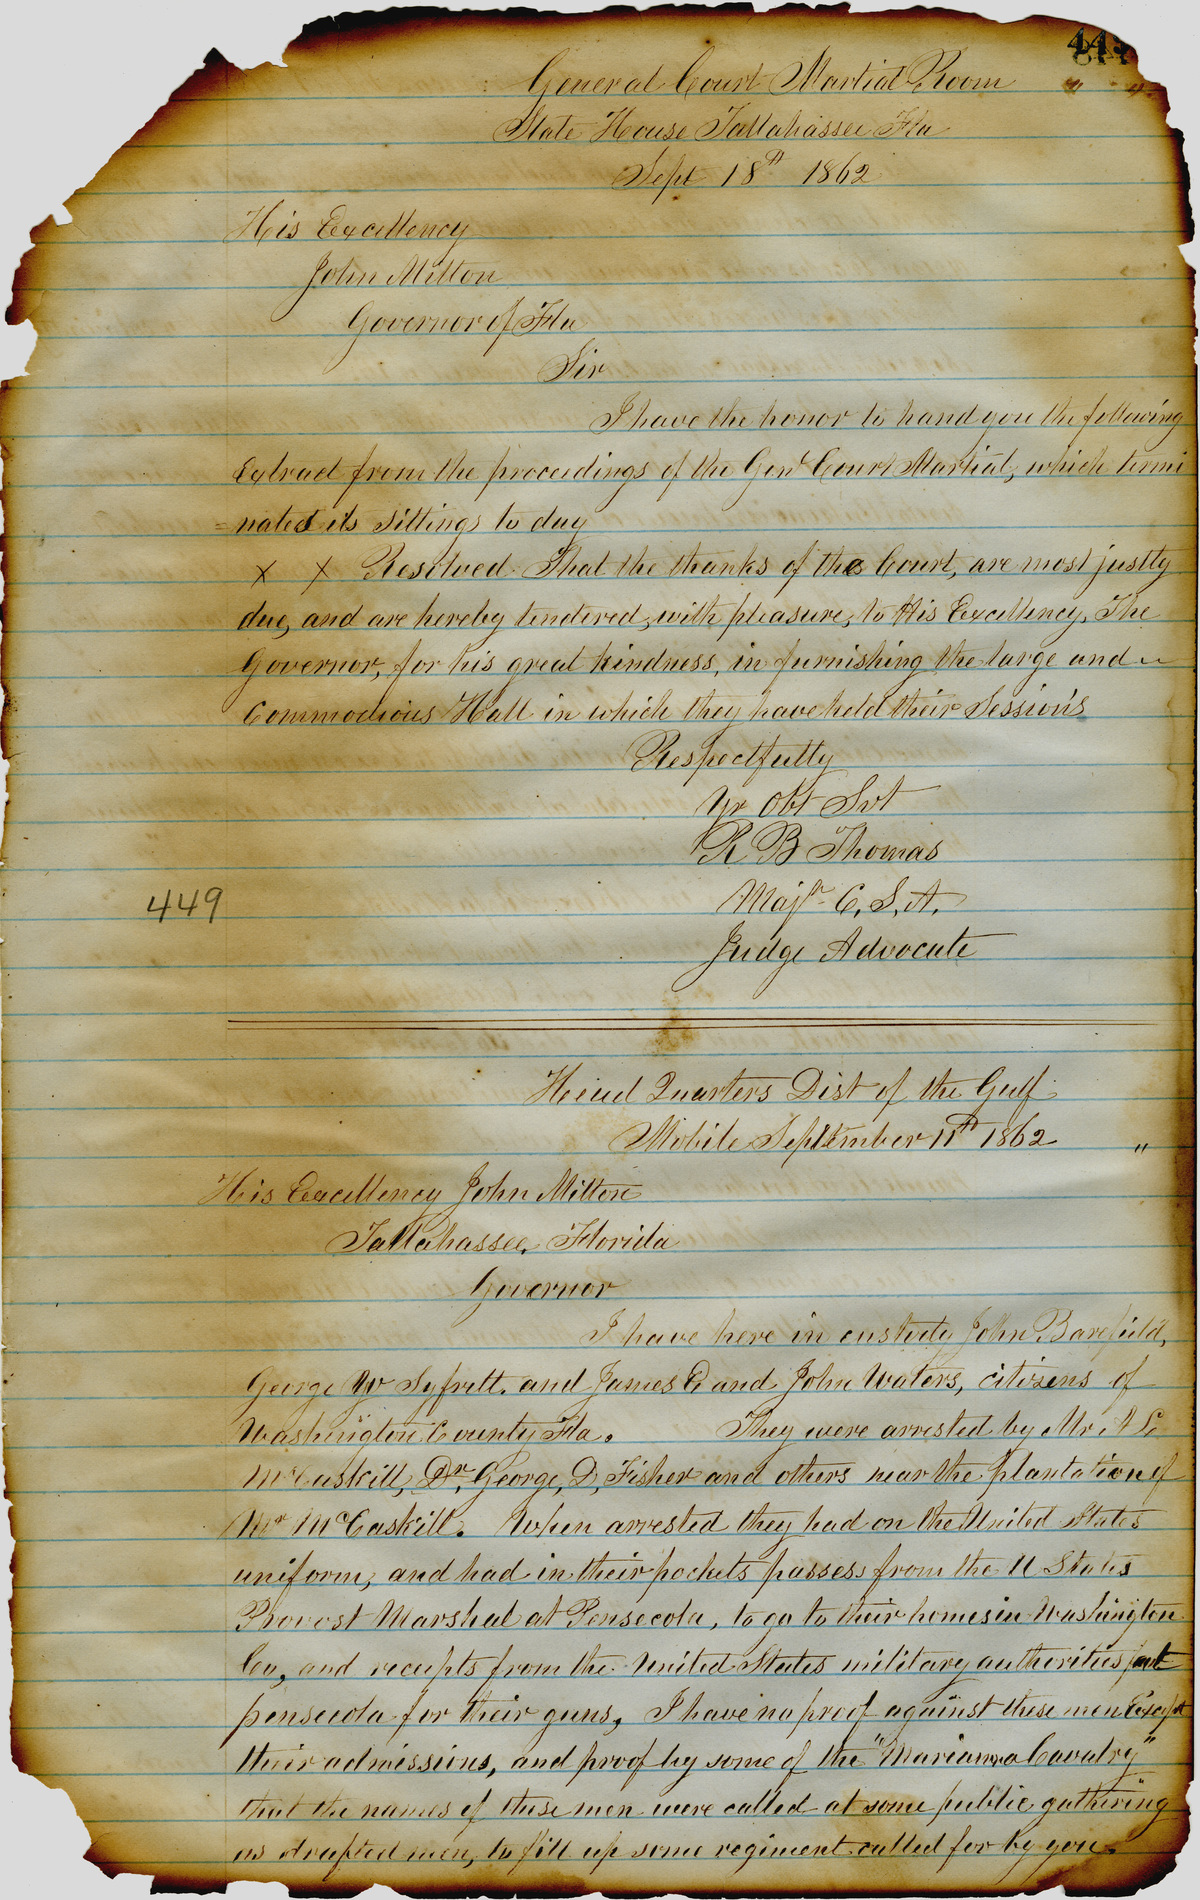 General Court Martial Room
State House Tallahassee Fla
Sept 18th 1862
His Excellency
John Milton
Governor of Fla
Sir
I have the honor to hand you the following
Extract from the proceedings of the Genl Court Martial, which termi
=nated its sittings to day
x x Resolved That the thanks of the Court, are most justly
due, and are hereby tendered, with pleasure, to His Excellency, The
Governor, for his great kindness, in furnishing the large and
Commodious Hall in which they have held their Sessions
Respectfully
Yr Obt Svt
R B Thomas
449
Majr C. S. A.
Judge Advocate
Head Quarters Dist of the Gulf
Mobile September 11th 1862 "
His Excellency John Milton
Tallahassee, Florida
Governor
I have here in custody John Barefield,
George W Syfrett. and James E and John Waters, citizens of
Washington County Fla. They were arrested by Mr. A L
McCaskill, Dr. George, D, Fisher and others near the plantation of
Mr McCaskill. When arrested they had on the United States
uniform, and had in their pockets passess from the U States
Provost Marshal at Pensecola, to go to their homes in Washington
Co, and receipts from the United States military authorities at
pensecola for their guns, I have no proof against these men Except
their admissions, and proof by some of the "Marianna Cavalry"
that the names of these men were called at some public gathering
as drafted men, to fill up some regiment called for by you.